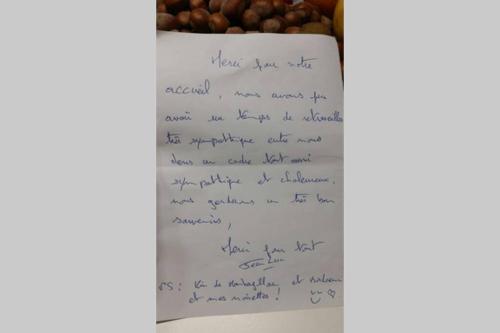 Merci pour notre
accueil, nous avons pu
avoir un temps de retrouvailles
très sympathique entre nous
dans un cadre tout aussi
sympathique et chaleureux,
nous gardons un très bon
souvenirs,
Merci pour tout
Jean Luc
PS : de et
et mes noisettes !